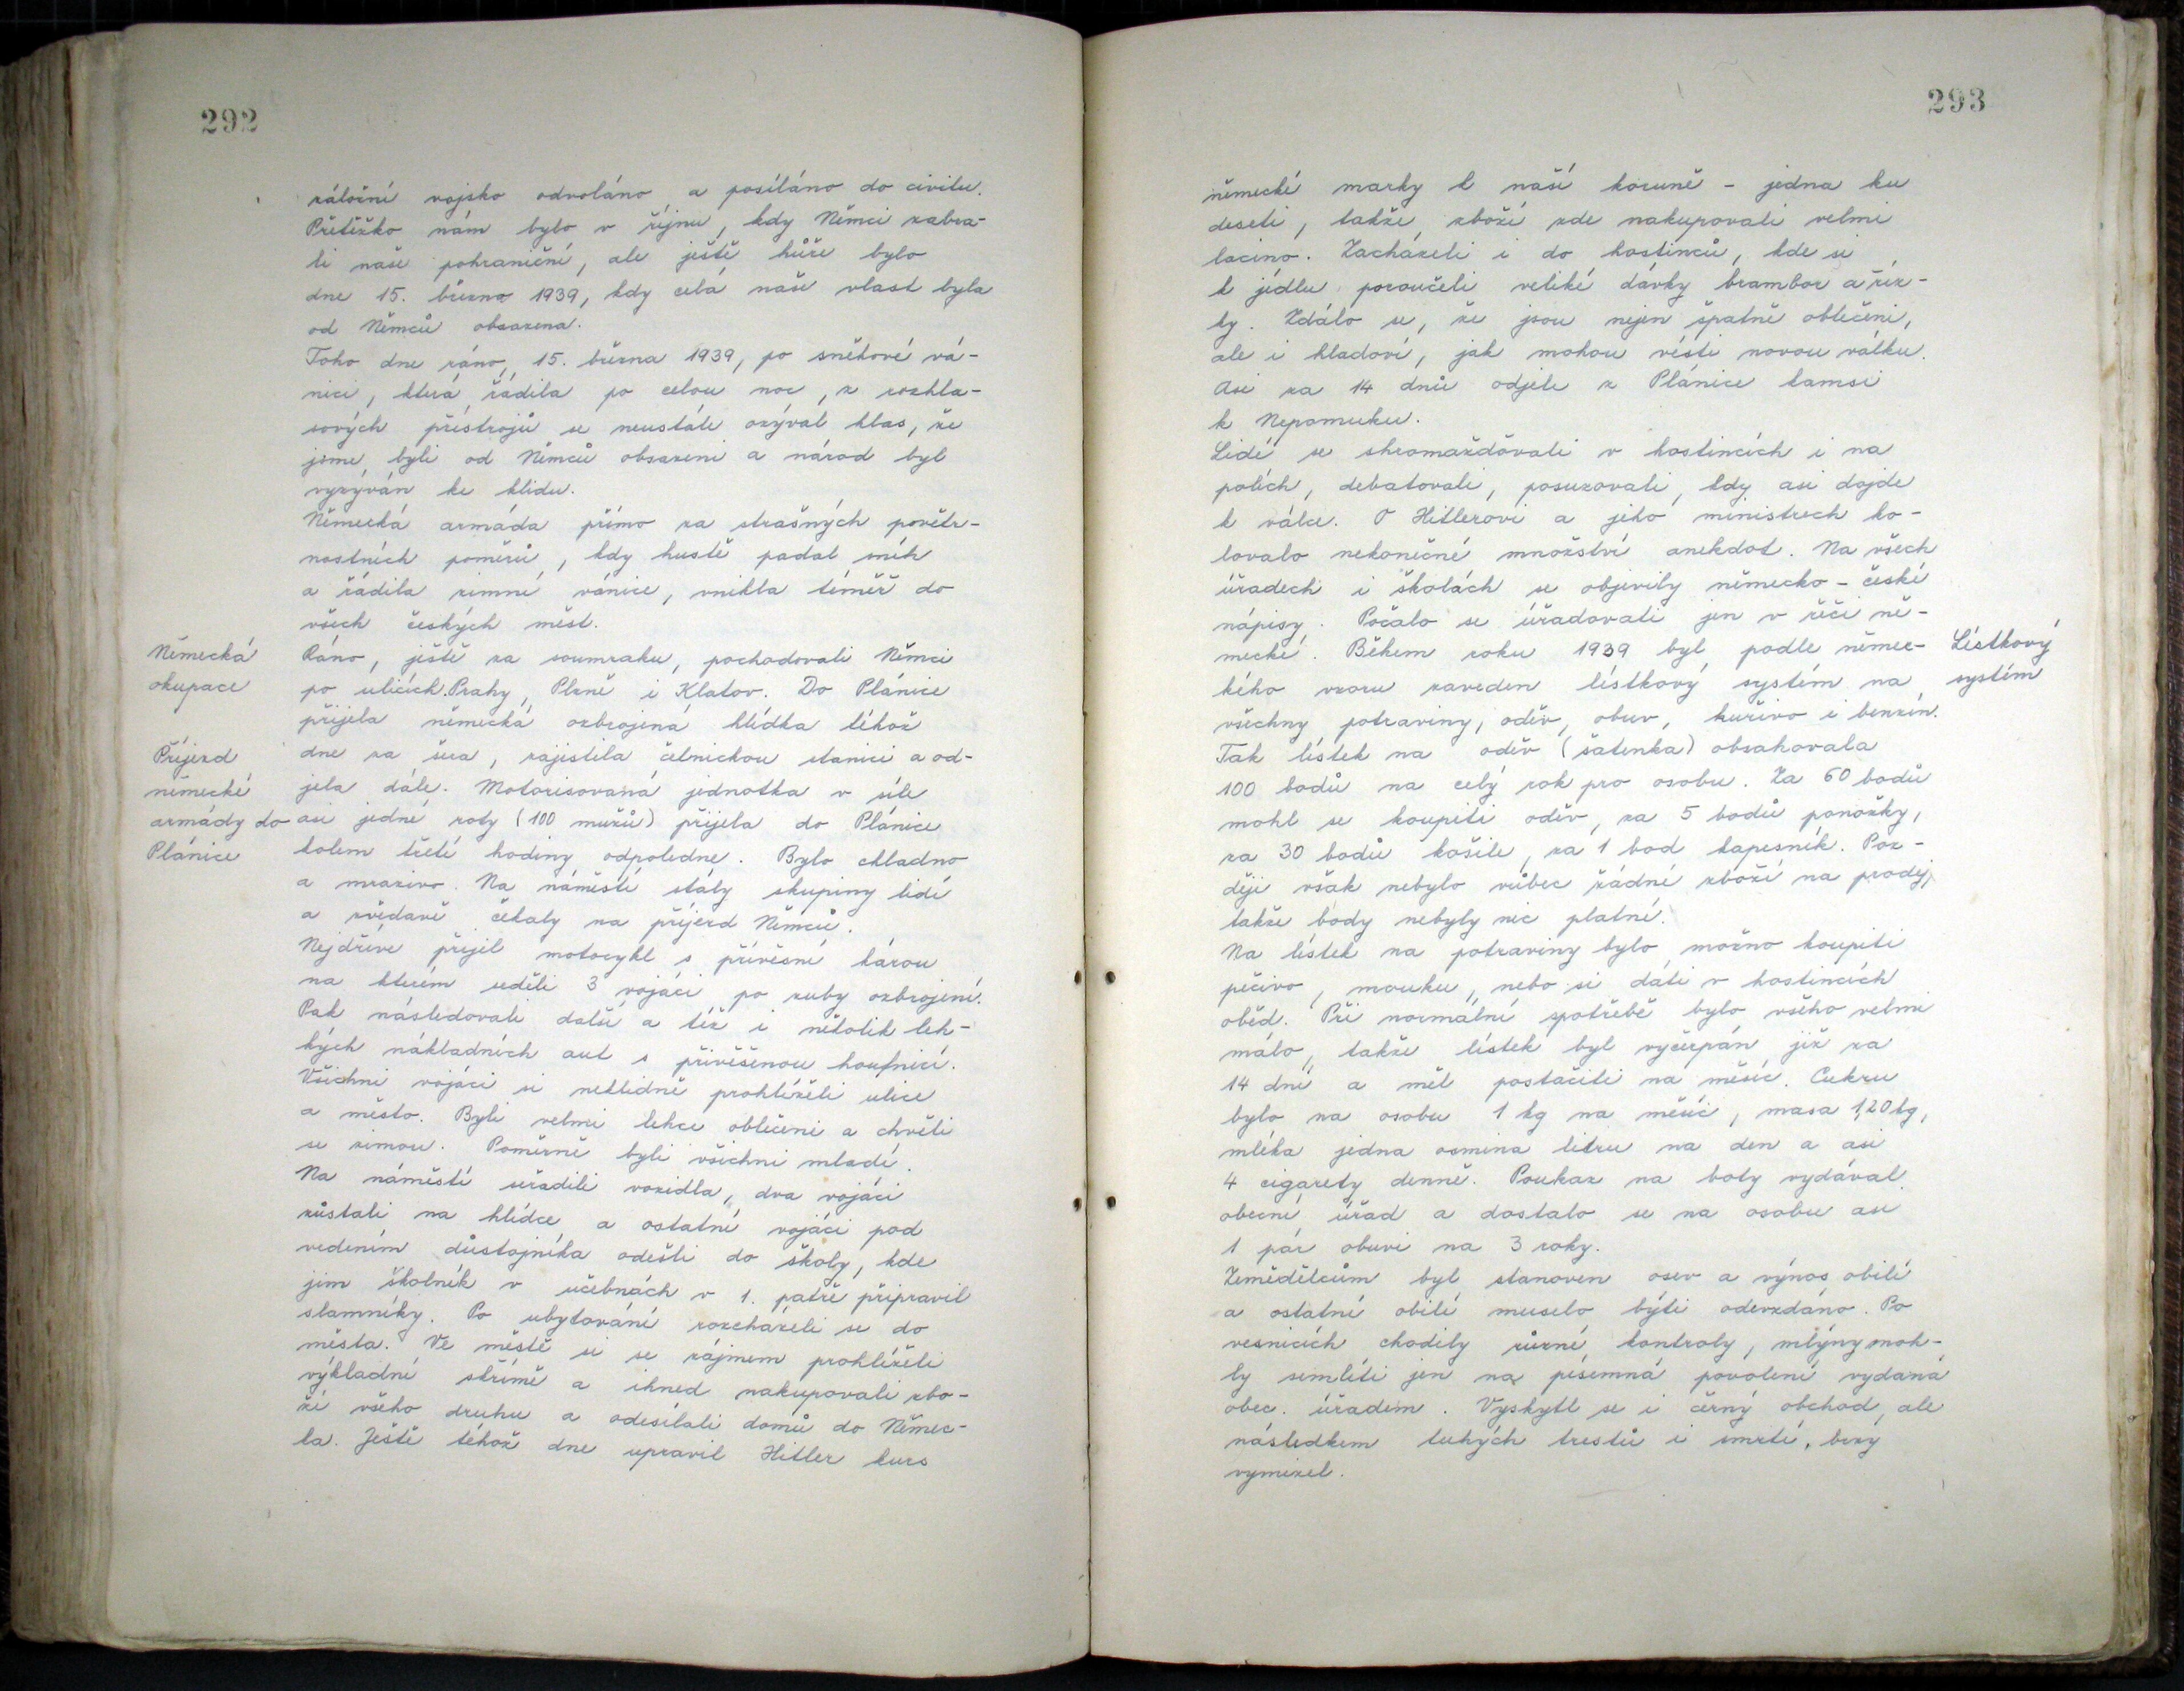 292
záložní vojsko odvoláno a posíláno do civilu.
Přetěžko nám bylo v říjnu, kdy Němci zabra-
li naše pohraničí, ale ještě hůře bylo
dne 15. března 1939, kdy celá naše vlast byla
od Němců obsazena.
Toho dne ráno, 15. března 1939, po sněhové vá-
nici, která řádila po celou noc, z rozhla-
sových přístrojů se neustále ozýval hlas, že
jsme byli od Němců obsazeni a národ byl
vyzýván ke klidu.
Německá armáda přímo za strašných povětr-
nostních poměrů, kdy hustě padal sníh
a řádila zimní vánice, vnikla téměř do
všech českých měst.
Německá
okupace
Ráno, ještě za soumraku, pochodovali Němci
po ulicích Prahy, Plzně i Klatov. Do Plánice
přijela německá ozbrojená hlídka téhož
Příjezd
německé
armády do
Plánice
dne za šera, zajistila četnickou stanici a od-
jela dále. Motorisovaná jednotka v síle
asi jedné roty (100 mužů) přijela do Plánice
kolem třetí hodiny odpoledne. Bylo chladno
a mrazivo. Na náměstí stály skupiny lidí
a zvědavě čekaly na příjezd Němců.
Nejdříve přijel motocykl s přívěsní károu
na kterém seděli 3 vojáci po zuby ozbrojení.
Pak následovali další a též i několik leh-
kých nákladních aut s přivěšenou houfnicí.
Všichni vojáci si neklidně prohlíželi ulice
a město. Byli velmi lehce oblečeni a chvěli
se zimou. Poměrně byli všichni mladí.
Na náměstí seřadili vozidla, dva vojáci
zůstali na hlídce a ostatní vojáci pod
vedením důstojníka odešli do školy, kde
jim školník v učebnách v 1. patře připravil
slamníky. Po ubytování rozcházeli se do
města. Ve městě si se zájmem prohlíželi
výkladní skříně a ihned nakupovali zbo-
ží všeho druhu a odesílali domů do Němec-
ka. Ještě téhož dne upravil Hitler kurs
293
německé marky k naší koruně - jedna ku
deseti, takže zboží zde nakupovali velmi
lacino. Zacházeli i do hostinců, kde si
k jídlu poroučeli veliké dávky brambor a říz-
ky. Zdálo se, že jsou nejen špatně oblečeni,
ale i hladoví, jak mohou vésti novou válku.
Asi za 14 dnů odjeli z Plánice kamsi
k Nepomuku.
Lidé se shromažďovali v hostincích i na
polích, debatovali, posuzovali, kdy asi dojde
k válce. O Hitlerovi a jeho ministrech ko-
lovalo nekonečné množství anekdot. Na všech
úřadech i školách se objevily německo - české
nápisy. Počalo se úřadovati jen v řeči ně-
mecké. Během roku 1939 byl podle němec-
kého vzoru zaveden lístkový systém na
Lístkový
systém
všechny potraviny, oděv, obuv, kuřivo i benzin.
Tak lístek na oděv (šatenka) obsahovala
100 bodů na celý rok pro osobu. Za 60 bodů
mohl se koupiti oděv, za 5 bodů ponožky,
za 30 bodů košile, za 1 bod kapesník. Poz-
ději však nebylo vůbec žádné zboží na prodej,
takže body nebyly nic platné.
Na lístek na potraviny bylo možno koupiti
pečivo, mouku, nebo si dáti v hostincích
oběd. Při normální spotřebě bylo všeho velmi
málo, takže lístek byl vyčerpán již za
14 dní a měl postačiti na měsíc. Cukru
bylo na osobu 1 kg na měsíc, masa 1,20 kg,
mléka jedna osmina litru na den a asi
4 cigarety denně. Poukaz na boty vydával
obecní úřad a dostalo se na osobu asi
1 pár obuvi na 3 roky.
Zemědělcům byl stanoven osev a výnos obilí
a ostatní obilí muselo býti odevzdáno. Po
vesnicích chodily různé kontroly, mlýny moh-
ly semlíti jen na písemná povolení vydaná
obec. úřadem. Vyskytl se i černý obchod, ale
následkem tuhých trestů i smrtí, brzy
vymizel.